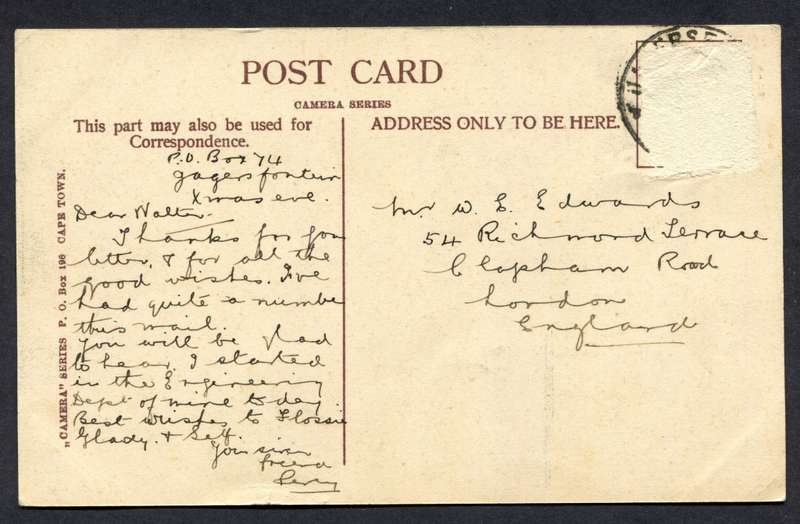 POST CARD
CAMERA SERIES
This part may also be used for
Correspondence.
ADDRESS ONLY TO BE HERE.
P.O. Box 74
Jagersfontein
Xmas eve.
Dear Walter
Thanks for you
letter, & for all the
good wishes. I've
had quite a numbe
this mail.
You will be glad
to hear, I started
in the Engineering
Dept of mine to day.
Best wishes to Flossie
Glady. & Self.
Your
friend
Mr W. E. Edwards
54 Richmond Terrace
Clapham Road
London
England
„CAMERA" SERIES P. O. Box 196 CAPE TOWN.